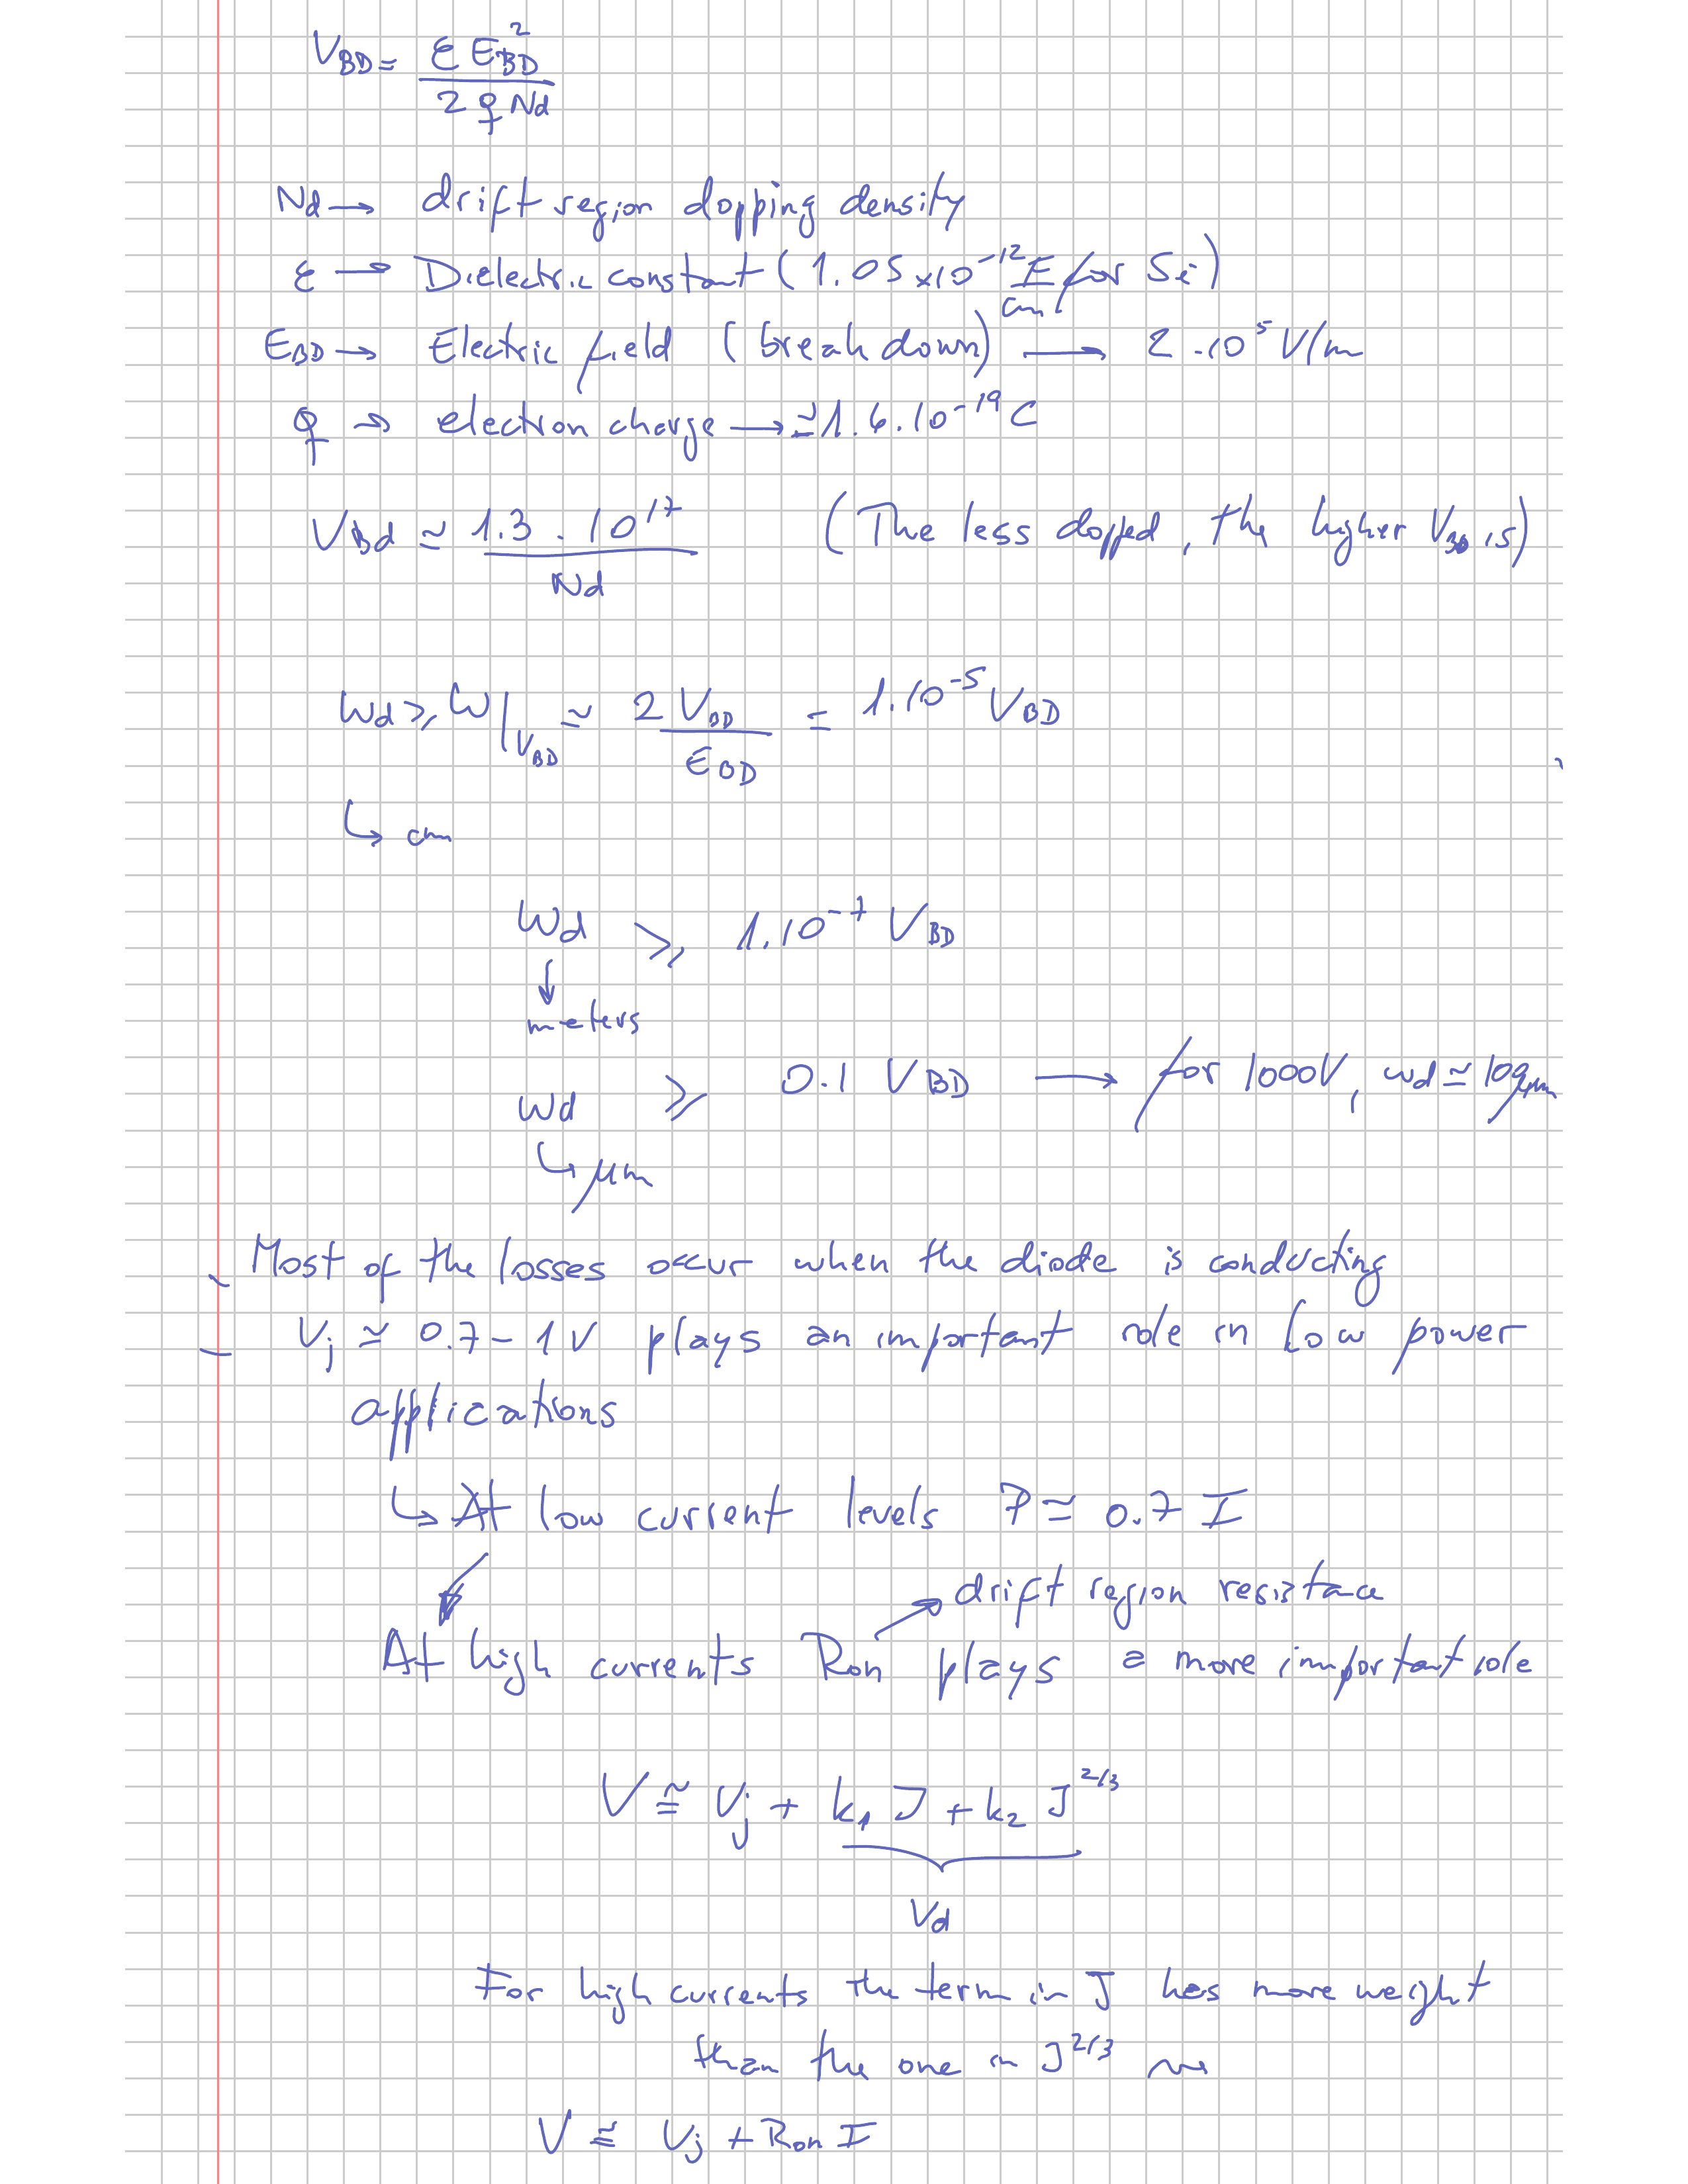 V_BD = ε E_BD² / (2 q Nd)
Nd → drift region dopping density
ε → Dielectric constant (1.05 x10⁻¹² F/cm for Si)
E_BD → Electric field (breakdown) → 2 . 10⁵ V/m
q → electron charge → ≃ 1.6 . 10⁻¹⁹ C
V_Bd ≃ 1.3 . 10¹⁷ / Nd (The less dopped, the higher V_BD is)
Wd ≥ W|_V_BD ≃ 2 V_BD / E_BD = 1.10⁻⁵ V_BD
↳ cm
Wd ≥ 1.10⁻⁷ V_BD
↓
meters
Wd ≥ 0.1 V_BD → for 1000V, wd ≃ 100 μm
↳ μm
- Most of the losses occur when the diode is conducting
- Vj ≃ 0.7 - 1 V plays an important role in low power
applications
↳ At low current levels P ≃ 0.7 I
drift region resistance
At high currents Ron plays a more important role
V ≅ Vj + k₁ J + k₂ J^2/3
Vd
For high currents the term in J has more weight
than the one in J^2/3
V ≅ Vj + Ron I